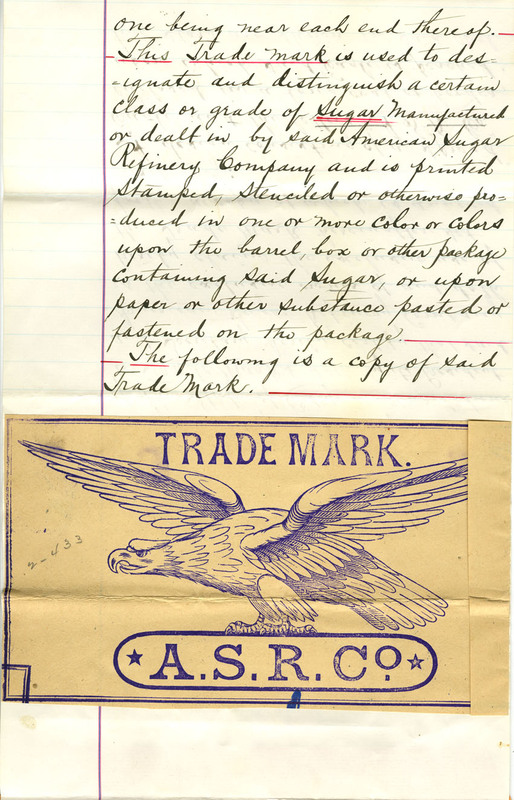 one being near each end thereof.
This Trade mark is used to des-
-ignate and distinguish a certain
class or grade of Sugar Manufactured
or dealt in by said American Sugar
Refinery Company and is printed
stamped, stenciled or otherwise pro-
-duced in one or more color or colors
upon the barrel, box or other package
containing said Sugar, or upon
paper or other substance pasted or
fastened on the package.
The following is a copy of said
Trade Mark.
TRADE MARK.
2-433
A.S.R.Co.